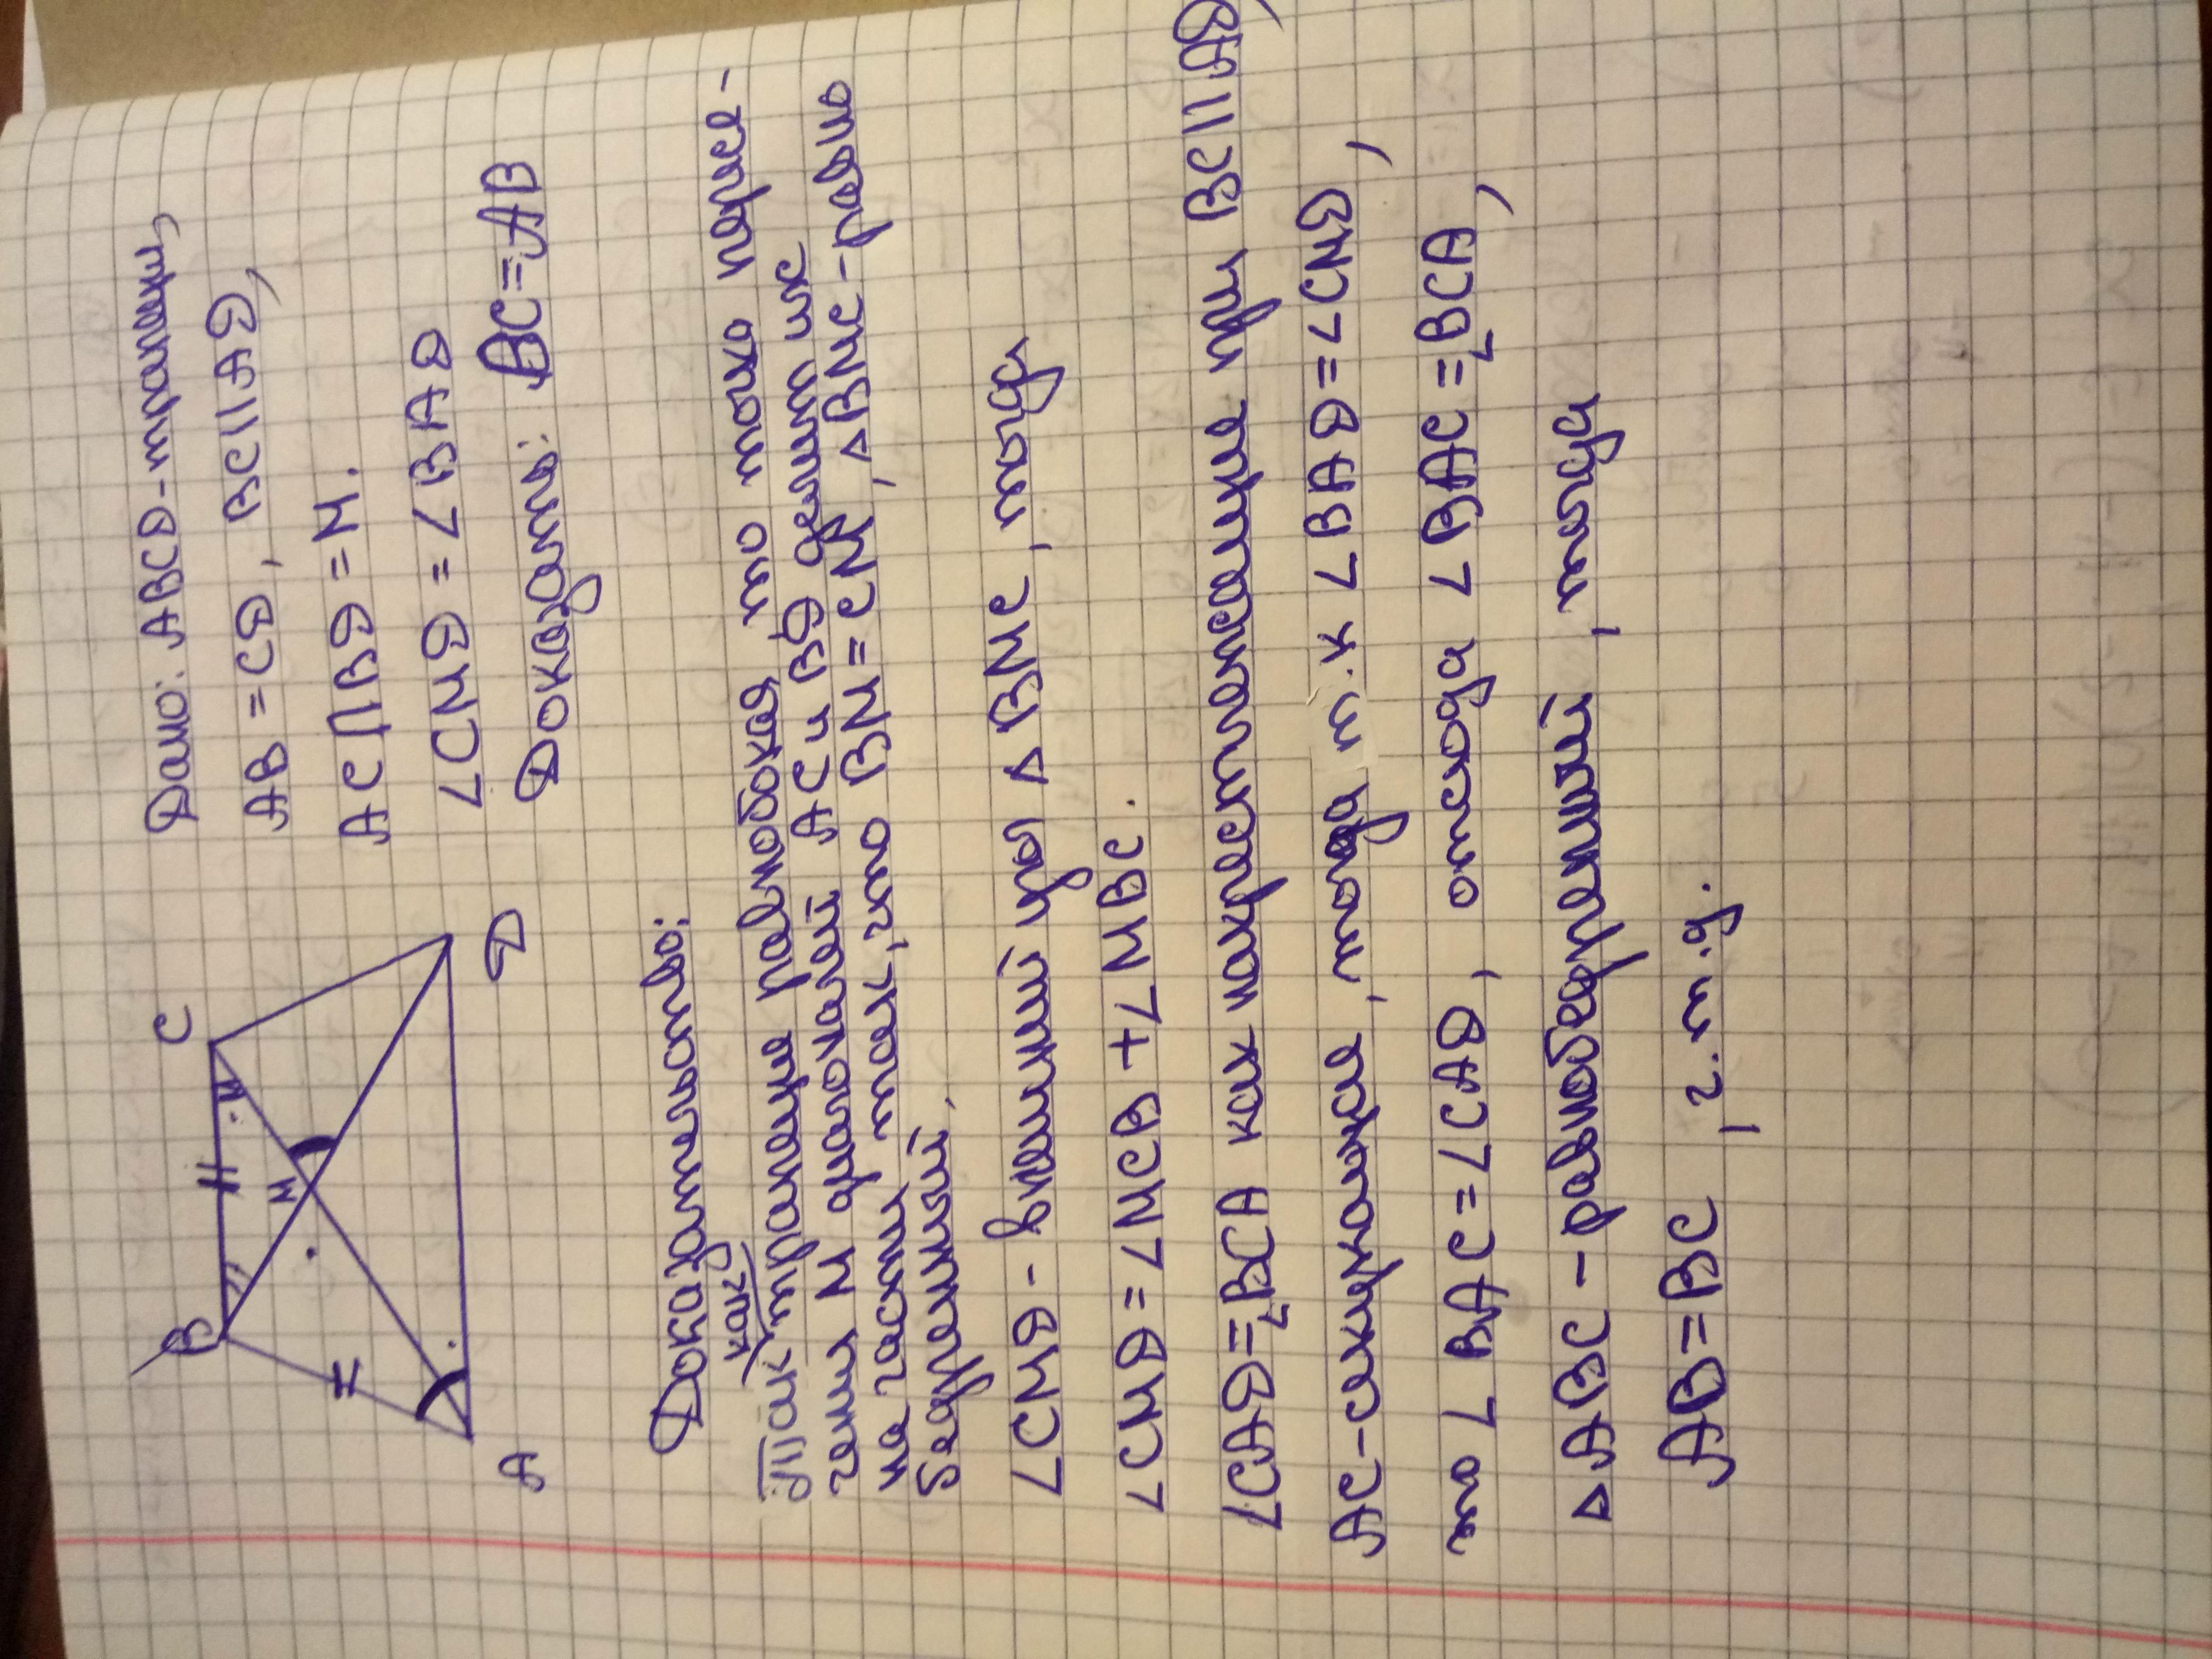 B C
M
A D
Дано: ABCD - трапеция,
AB = CD, BC || AD,
AC ∩ BD = M.
∠CMD = ∠BAD
Доказать: BC = AB
Доказательство:
трапеция равнобедренная, то
M диагоналей AC и BD делит их
на такие части, что BM = MC, ΔBMC - равно-
бедренный.
∠CMD - внешний для ΔBMC, тогда
∠CMD = ∠MCB + ∠MBC.
∠CAD = ∠BCA как накрест лежащие при BC || AD,
AC - секущая, тогда т.к ∠BAD = ∠CMD,
∠BAC = ∠CAD, отсюда ∠BAC = ∠BCA,
ΔABC - равнобедренный, тогда
AB = BC, ч.т.д.